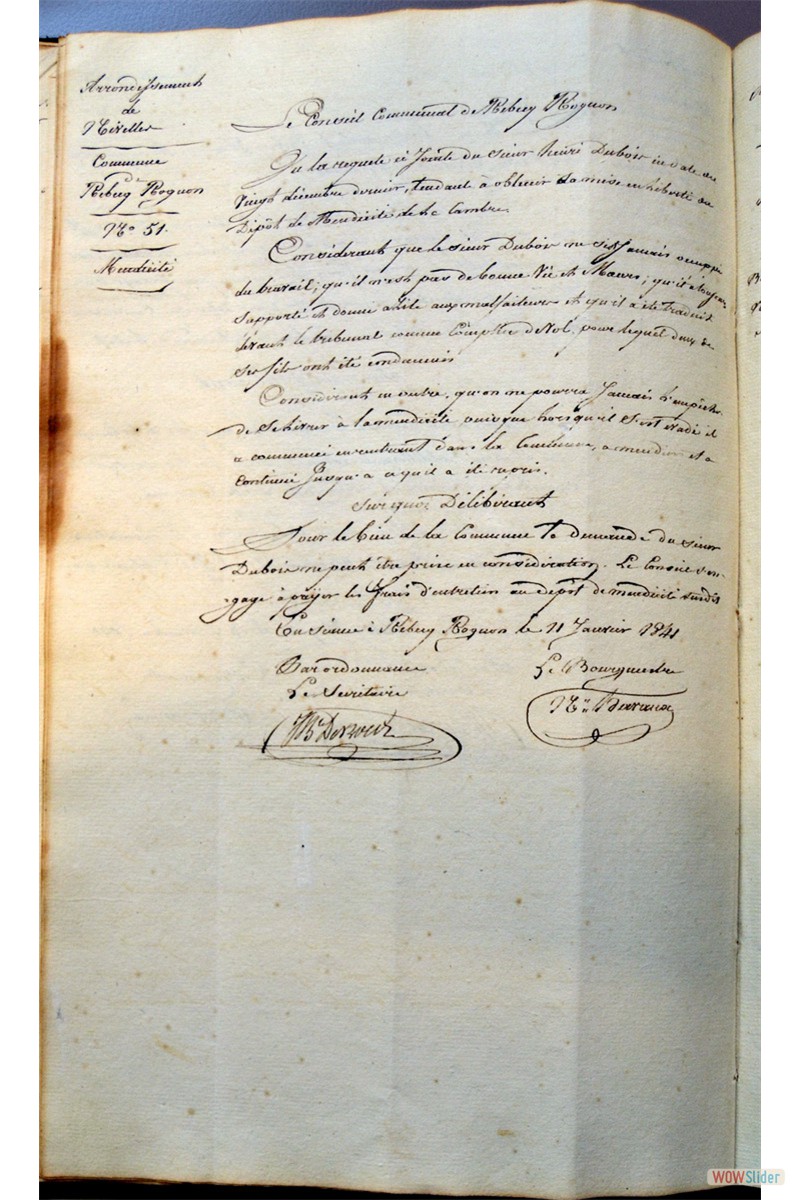 Arrondissement
de
Nivelles
Commune
de
Rebecq Rognon
No 51.
Mendicité
Le Conseil Communal de Rebecq Rognon
Vu la requete ci Jointe du sieur henri Dubois en date du
vingt décembre dernier, tendante à obtenir sa mise en liberté du
Dépôt de Mendicité de la Cambre,
Considérant que le sieur Dubois ne s'est Jamais occuppé
du travail; qu'il n'est pas de bonne Vie et Mœurs; qu'il a toujours
supporté et donné asile aux malfaiteurs et qu'il a été traduit
devant le tribunal comme Complice de Vol, pour lequel deux de
ses fils ont été condamnés
Considérant en outre, qu'on ne pourra Jamais l'empêcher
de se livrer à la mendicité puisque lorsqu'il s'est evadé il
a commencé en rentrant dans la Commune, a mendier et a
continué Jusqu'a ce qu'il a été repris.
Sur quoi Délibérant
Pour le bien de la Commune la demande du sieur
Dubois ne peut être prise en considération. Le Conseil s'en-
gage à payer les frais d'entretien au dépôt de mendicité susdit
En séance à Rebecq Rognon le 11 Janvier 1841
Par ordonnance
Le Secrétaire
Le Bourgmestre
WOWSlider